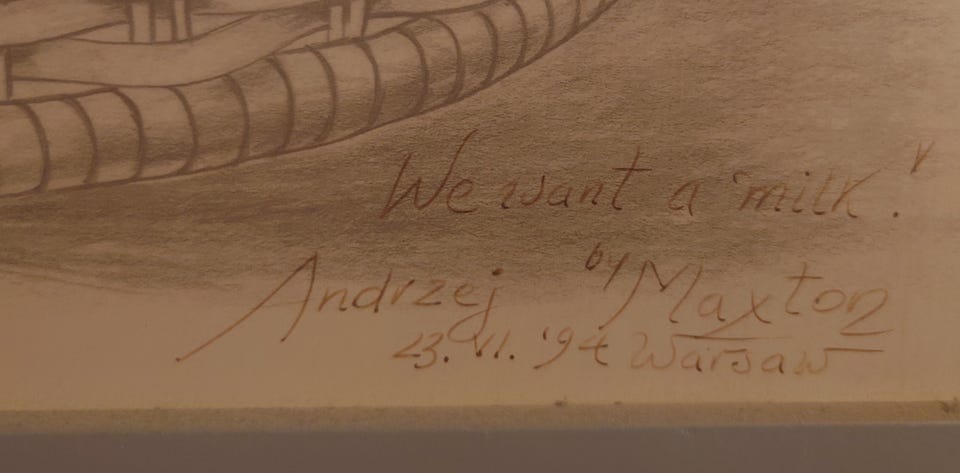 We want a "milk".
by
Andrzej Maxton
23. VI. '94 Warsaw